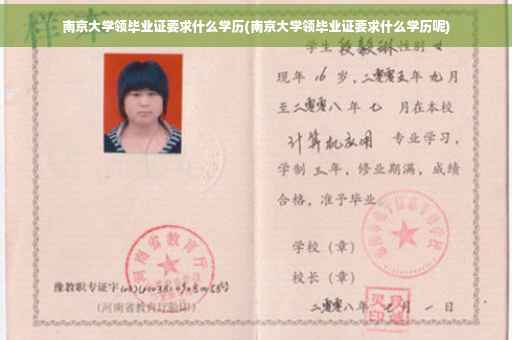 南京大学领毕业证要求什么学历(南京大学领毕业证要求什么学历呢)
样本
学生 段毅琳 性别 女
现年 16 岁，二零零五年 九 月
至二零零八年 七 月在本校
计算机应用 专业学习，
学制 三 年，修业期满，成绩
合格，准予毕业
学校（章）
校长（章）
二零零八年 七 月 一 日
河南省教育厅
豫教职专证字
(河南省教育厅验印)